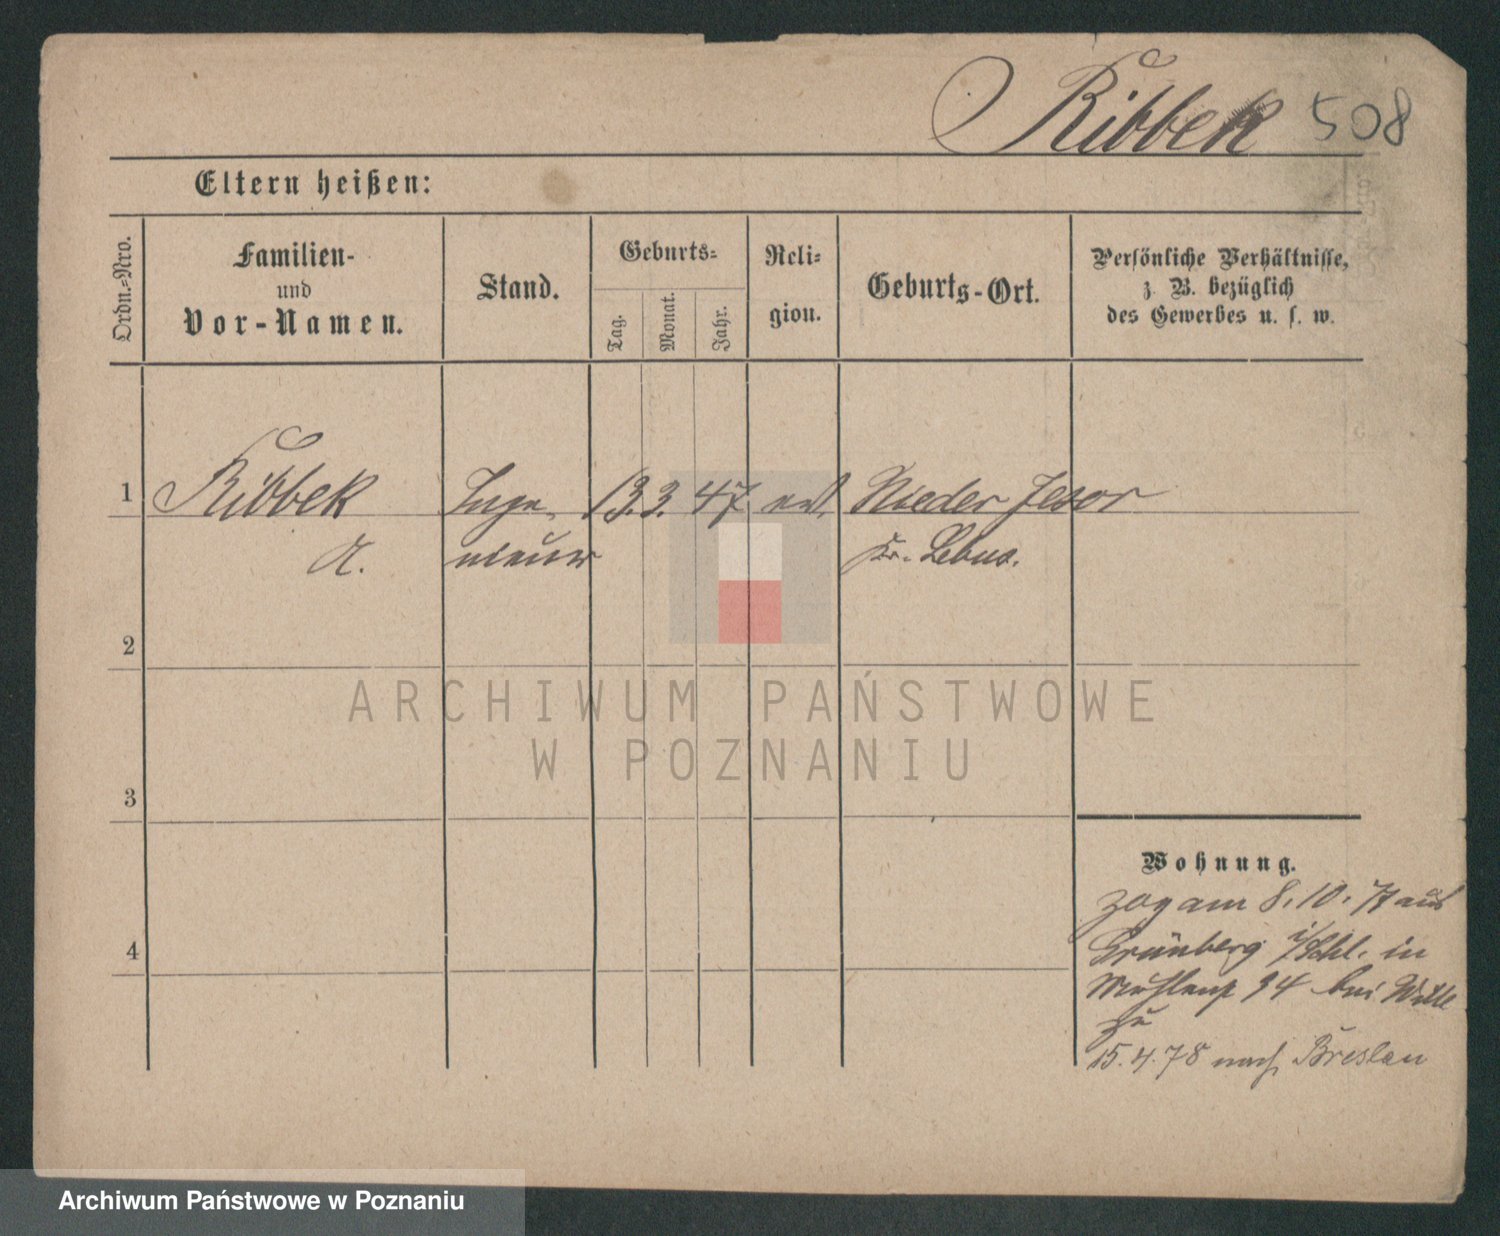 Ribbek 508
Eltern heißen:
Ordn.-Nro.
Familien-
und
Vor-Namen.
Stand.
Geburts-
Tag.
Monat.
Jahr.
Reli-
gion.
Geburts-Ort.
Persönliche Verhältnisse,
z. B. bezüglich
des Gewerbes u. s. w.
1 Ribbek Inge- 13. 3. 47 ev. Nieder Jesar
A. nieur Kr. Lebus.
2
3
4
ARCHIWUM PAŃSTWOWE
W POZNANIU
Wohnung.
zog am 8. 10. 77 aus
Grünberg i/Schl. in
Mühlenst 34 bei Witte
zu
15. 4. 78 nach Breslau
Archiwum Państwowe w Poznaniu